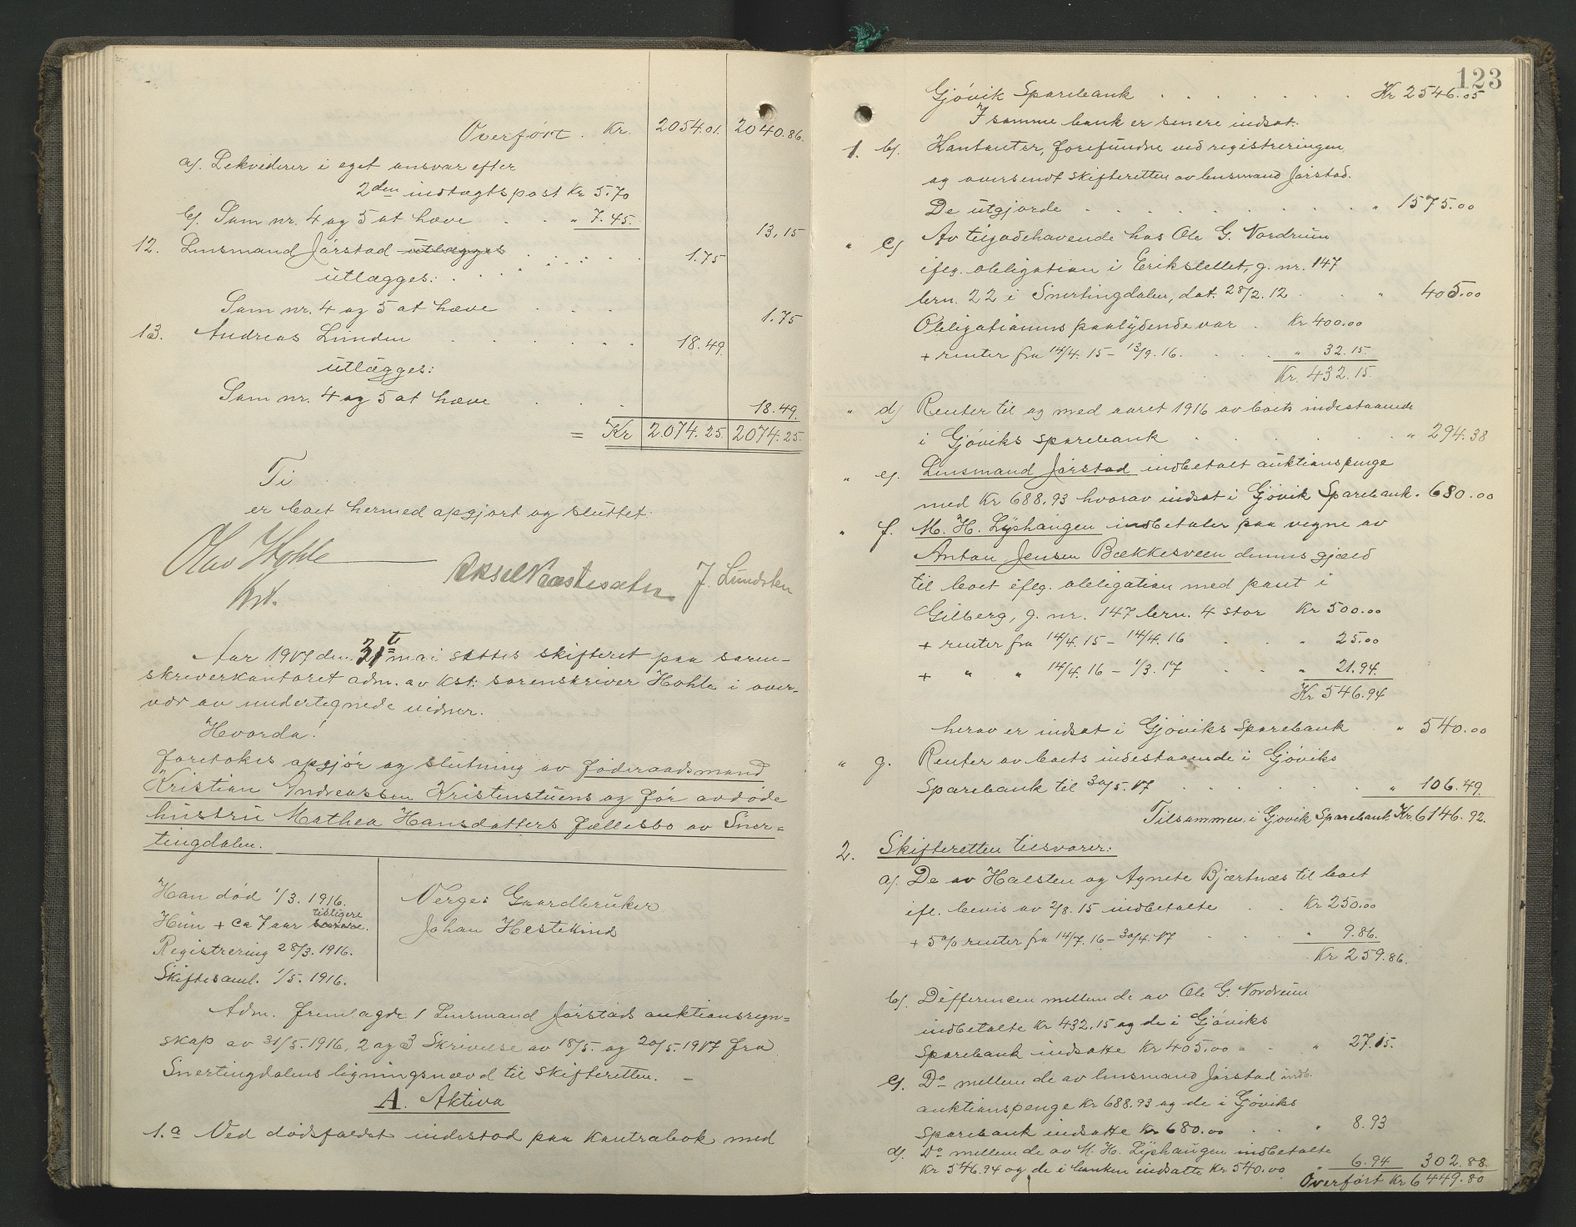 Overført . Kr. 2054.01. 2040.86.
a). Lekviderer i eget ansvar efter
2den indtægtspost Kr 5.70
b). Sum nr. 4 og 5 at hæve . . " 7.45. 13,15
12. Lensmand Jørstad utlægges . . . . . 1.75
utlægges: . .
Sum nr. 4 og 5 at hæve . . . 1.75
13. Andreas Lunden . . . . . . 18.49.
utlægges:
Sum nr. 4 og 5 at hæve . . . 18.49.
= Kr 2.074.25. 2074.25.
Ti
er boet hermed opgjort og sluttet.
Olav Hohle
Kst.
J. Lundsten
Aar 1917 den 31te mai sattes skifteret paa soren-
skriverkontoret adm. av kst. sorenskriver Hohle i over-
vær av undertegnede vidner.
Hvorda!
foretokes opgjør og slutning av føderaadsmand
Kristian Andreassen Kristinstuens og før avdøde
hustru Mathea Hansdatters fællesbo av Sner-
tingdalen.
Han død 1/3. 1916.
Hun + ca 7 aar tidligere
Registrering 28/3. 1916.
Skiftesaml. 1/5. 1916.
Verge: Gaardbruker
Johan Hestekind
Adm. fremlagde 1 Lensmand Jørstads auktionsregn-
skap av 31/5. 1916, 2 og 3 Skrivelse av 18/5. og 20/5. 1917 fra
Snertingdalens ligningsnævd til skifteretten. –
A. Aktiva
1. a Ved dødsfaldet indestod paa kontrabok med
123
Gjøvik Sparebank . . . . . . . Kr 2546.05
I samme bank er senere indsat:
1. b). Kontanter, forefundne ved registreringen
og oversendt skifteretten av lensmand Jørstad.
De utgjorde . . . . . . . . . " 1575.00
" c) Av tilgodehavende hos Ole G. Nordrum
ifølg. obligation i Erikstellet, g. nr. 147
brn. 22 i Snertingdalen, dat. 28/2. 12 . . . " 405.00
Obligationens paalydende var . Kr 400.00
+ renter fra 14/4. 15 – 13/9. 16. . . " 32.15
Kr. 432.15.
" d) Renter til og med aaret 1916 av boets indestaaende
i Gjøviks sparebank . . . . . . . " 294.38
" e). Lensmand Jørstad indbetalt auktionspenge
med Kr 688.93 hvorav indsat i Gjøvik Sparebank . 680.00
" f. M. H. Lyshaugen indbetaler paa vegne av
Anton Jensen Bækkesveen dennes gjæld
til boet ifølg. obligation med pant i
Gilberg, g. nr. 147 brn. 4 stor Kr 500.00
+ renter fra 14/4. 15 – 14/4. 16 . . " 25.00
+ " " 14/4. 16 – 1/3. 17 . . " 21.94.
Kr 546.94
herav er indsat i Gjøviks Sparebank . " 540.00
" g. Renter av boets indestaaende i Gjøviks
Sparebank til 30/5. 17 . . . . . . " 106.49.
Tilsammen i Gjøvik Sparebank Kr. 6146.92.
2. Skifteretten tilsvarer:
a). De av Halsten og Agnete Bjærtnæs til boet
ifl. bevis av 2/8. 15 indbetalte . . Kr 250.00
+ 5% renter fra 14/7. 16 – 30/4. 17 . . " 9.86.
Kr 259.86.
b). Differencen mellem de av Ole G. Nordrum
indbetalte Kr 432.15 og de i Gjøviks
Sparebank indsatte Kr 405.00 . . " 27.15.
c). Do mellem de av lensmand Jørstad indb.
auktionspenge Kr 688.93 og de i Gjøviks
Sparebank indsatte Kr 680.00 . . " 8.93
d). Do mellem de av M. H. Lyshaugen indbetalte
Kr 546.94 og de i banken indsatte Kr 540.00 " 6.94 302.88.
Overført Kr 6449.80